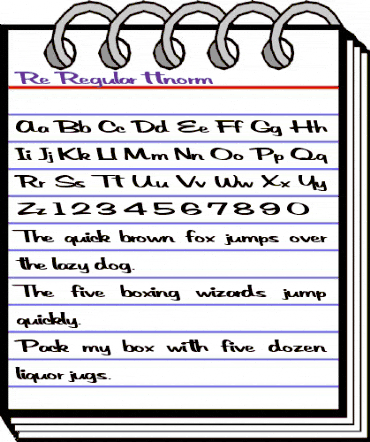 Re Regular Ttnorm
Aa Bb Cc Dd Ee Ff Gg Hh
Ii Jj Kk Ll Mm Nn Oo Pp Qq
Rr Ss Tt Uu Vv Ww Xx Yy
Zz 1 2 3 4 5 6 7 8 9 0
The quick brown fox jumps over
the lazy dog.
The five boxing wizards jump
quickly.
Pack my box with five dozen
liquor jugs.